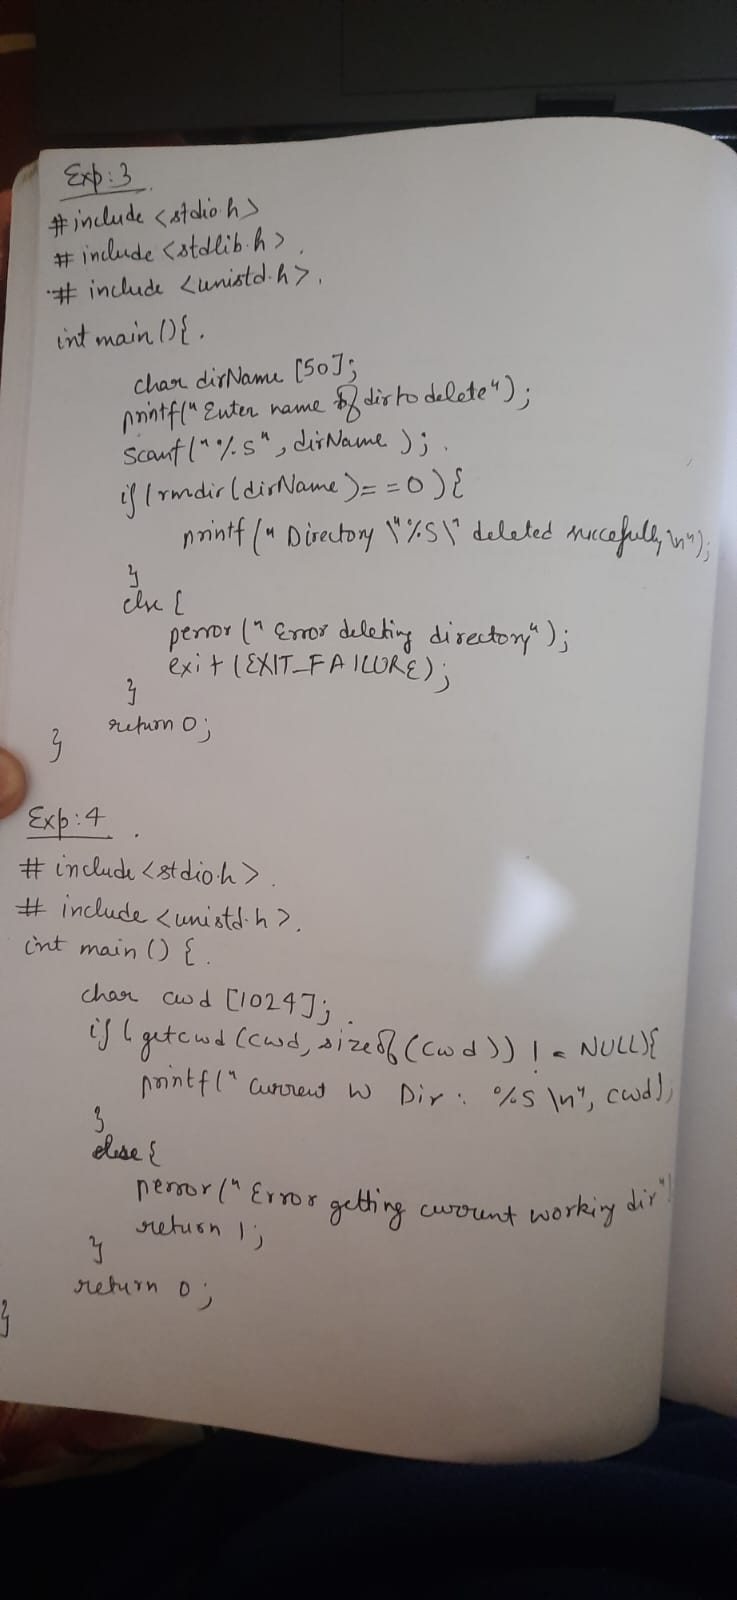 Exp:3
#include <stdio.h>
# include <stdlib.h>
# include <unistd.h>
int main () {
char dirName [50];
printf(" Enter name of dir to delete");
scanf("%s", dirName );
if (rmdir(dirName)==0) {
printf (" Directory \"%s\" deleted succefully \n");
}
else {
perror (" Error deleting directory");
exit (EXIT_FAILURE);
}
return 0;
}
Exp:4
# include <stdio.h>
# include <unistd.h>
int main () {
char cwd [1024];
if ( getcwd (cwd, sizeof (cwd)) != NULL){
printf(" Current W Dir : %s \n", cwd);
}
else {
perror (" Error getting current working dir")
return 1;
}
return 0;
}